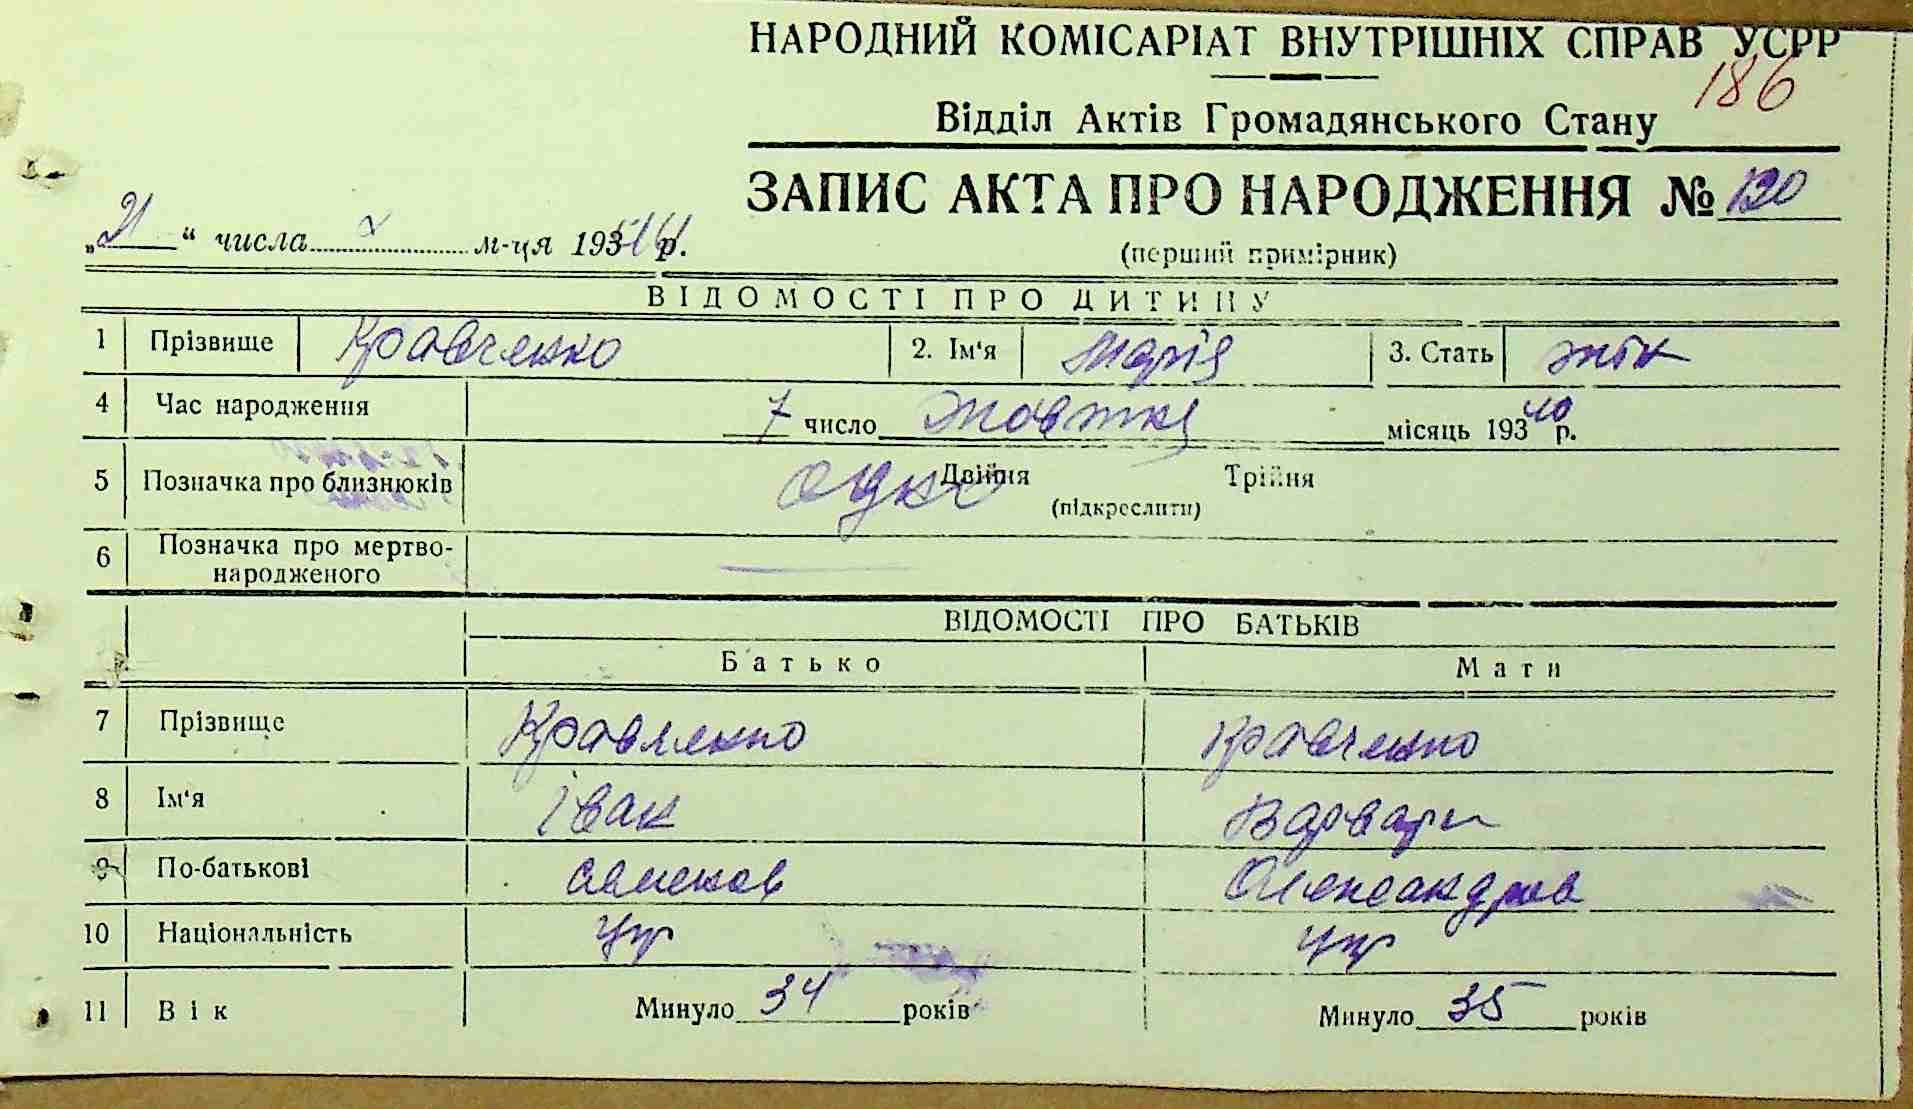 НАРОДНИЙ КОМІСАРІАТ ВНУТРІШНІХ СПРАВ УСРР
186
Відділ Актів Громадянського Стану
ЗАПИС АКТА ПРО НАРОДЖЕННЯ № 120
„21“ числа м-ця 193 р.
(перший примірник)
ВІДОМОСТІ ПРО ДИТИНУ
1 Прізвище Кравченко 2. Ім'я Марія 3. Стать жін
4 Час народження 7 число Жовтня місяць 193 40 р.
5 Позначка про близнюків одно Двійня Трійня
(підкреслити)
6 Позначка про мертво-
народженого
ВІДОМОСТІ ПРО БАТЬКІВ
Батько Мати
7 Прізвище Кравченко Кравченко
8 Ім'я Іван Варвара
9 По-батькові Семенов Олександров
10 Національність Укр Укр
11 Вік Минуло 34 років Минуло 35 років